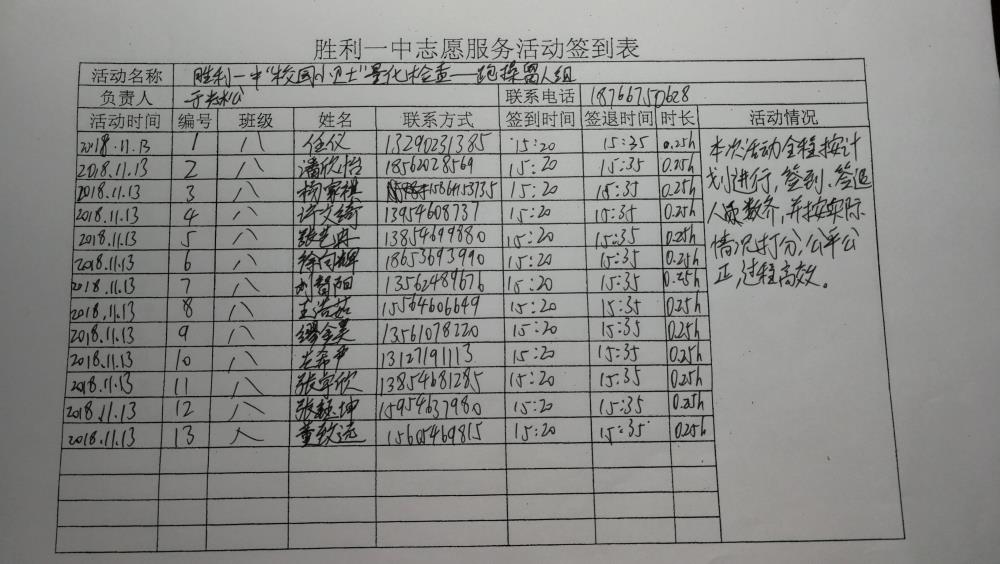 胜利一中志愿服务活动签到表
活动名称 胜利一中"校园小卫士"量化检查——跑操留人组
负责人 联系电话 18766750628
活动时间 编号 班级 姓名 联系方式 签到时间 签退时间 时长 活动情况
2018.11.13 1 八 任仪 13290231385 15:20 15:35 0.25h
2018.11.13 2 八 潘欣怡 18562028569 15:20 15:35 0.25h
2018.11.13 3 八 杨家祺 15864153735 15:20 15:35 0.25h
2018.11.13 4 八 许文绮 13954608737 15:20 15:35 0.25h
2018.11.13 5 八 13854699880 15:20 15:35 0.25h
2018.11.13 6 八 徐向辉 18653693990 15:20 15:35 0.25h
2018.11.13 7 八 刘智阳 13562489676 15:20 15:35 0.25h
2018.11.13 8 八 王浩茹 15564606649 15:20 15:35 0.25h
2018.11.13 9 八 13561078220 15:20 15:35 0.25h
2018.11.13 10 八 左希尹 13127191113 15:20 15:35 0.25h
2018.11.13 11 八 张宇欣 13854681285 15:20 15:35 0.25h
2018.11.13 12 八 张钰坤 15954637980 15:20 15:35 0.25h
2018.11.13 13 八 董致远 15605469815 15:20 15:35 0.25h
本次活动全程按计
划进行,签到、签退
人员数齐,并按实际
情况打分,公平公
正,过程高效。